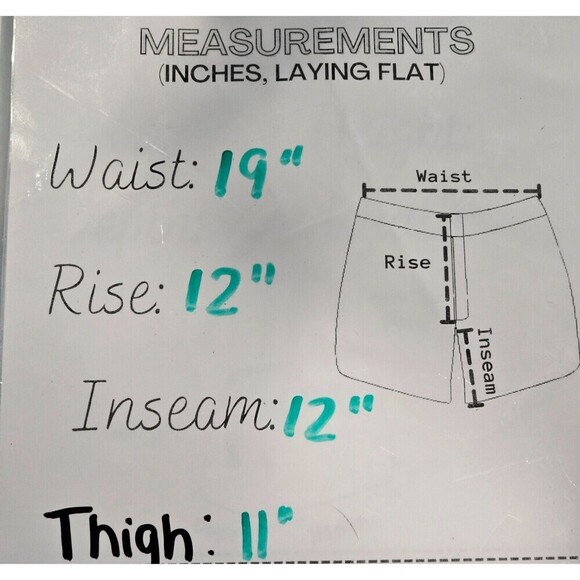 MEASUREMENTS
(INCHES, LAYING FLAT)
Waist: 19"
Waist
Rise
Rise: 12"
Inseam
Inseam: 12"
Thigh: 11"